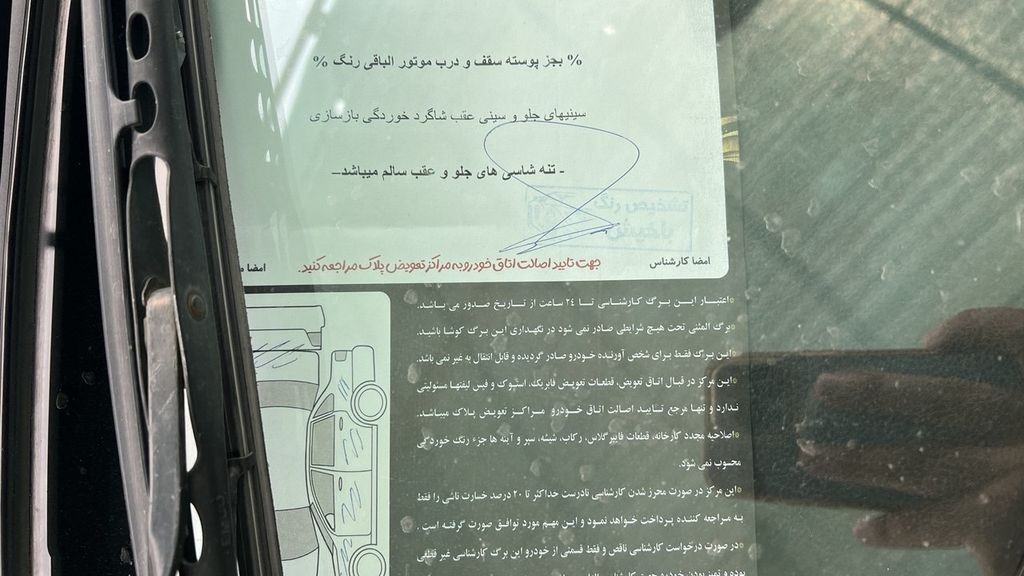 % بجز پوسته سقف و درب موتور الباقی رنگ %
سینیهای جلو و سینی عقب شاگرد خوردگی بازسازی
- تنه شاسی های جلو و عقب سالم میباشد–
تشخیص رنگ
امضا کارشناس
جهت تایید اصالت اتاق خودرو به مراکز تعویض پلاک مراجعه کنید.
امضا
اعتبار این برگ کارشناسی تا ۲۴ ساعت از تاریخ صدور می باشد.
برگ المثنی تحت هیچ شرایطی صادر نمی شود در نگهداری این برگ کوشا باشید.
این برگ فقط برای شخص آورنده خودرو صادر گردیده و قابل انتقال به غیر نمی باشد.
این مرکز در قبال اتاق تعویض، قطعات تعویض فابریک، استوک و فیس لیفتها مسئولیتی
ندارد و تنها مرجع تایید اصالت اتاق خودرو مراکز تعویض پلاک میباشد.
اصلاحیه مجدد کارخانه، قطعات فایبرگلاس، رکاب، شیشه، سپر و آینه ها جزء رنگ خوردگی
محسوب نمی شود.
این مرکز در صورت محرز شدن کارشناسی نادرست حداکثر تا ۲۰ درصد خسارت ناشی را فقط
به مراجعه کننده پرداخت خواهد نمود و این مهم مورد توافق صورت گرفته است.
در صورت درخواست کارشناسی ناقص و فقط قسمتی از خودرو این برگ کارشناسی غیر قطعی